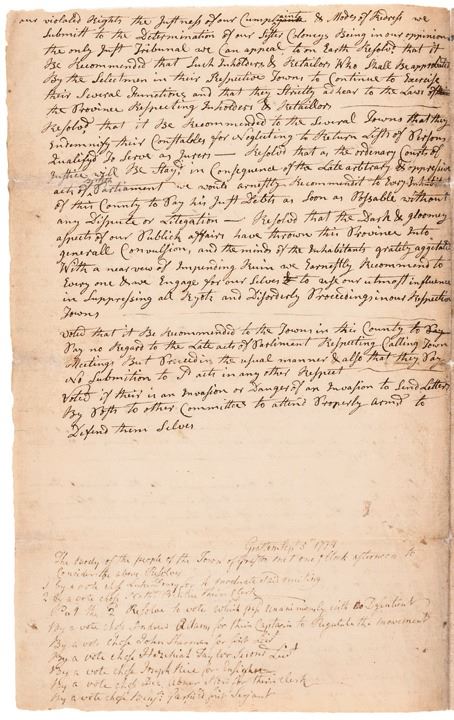 our violated Rights the Justness of our Complaints & Modes of Redress we
Submitt to the Determination of our Sister Colonies Being in our opinion
the only Just Tribunal we Can appeal to on Earth Resolvd that it
Be Recommended that Such Inholders & Retailors Who Shall Be approbated
By the Selectmen in their Respective Towns to Continue to Exercise
their Several Functions and that they Strictly adhear to the Laws of
the Province Respecting Inholders & Retailors
Resolvd that it Be Recommended to the Several Towns that they
Endemnify their Constables for Neglecting to Return Lists of Persons
Qualifyd To Serve as Jurers — Resolvd that as the ordinary Courts of
Justice will Be Stayd in Consequence of the Late arbitrary & oppressive
acts of Parliament we would arnestly Recommend to Every Inhabitant
of this County to Pay his Just Debts as Soon as Possable without
any Dispute or Litegation — Resolvd that the Dark & gloomey
aspects of our Publick affairs have thrown this Province Into
generall Convulsion, and the minds of the Inhabitants
With a near vew of Impending Ruin we Earnestly Recommend to
Every one & we Engage for our Selves to use our utmost influence
in Suppressing all Ryots and Disorderly Proceedings in our Respective
Towns
Voted that it Be Recommended to the Towns in this County to Pay
Pay no Regard to the Late acts of Parliment Respecting Calling Town
Meetings But Proceed in the usual manner & also that they Pay
No Submition to acts in any other Respect
Voted if their is an Invasion or Danger of an Invasion to Send Letters
By Posts to other Committee to attend Properly armd to
Defend them Selves
1774
The Body of the people of the Town of met one oClock afternoon to
Consider the above Resolves
1 By a vote Moderator of meeting
2 By a vote chose Clerk
Put the Resolves to vote which pass unanimously with no
By a vote chose Andrew Adams for their Captain to Regulate the movement
By a vote chose John Sherman for first
By a vote chose Taylor Second
By a vote chose Joseph
By a vote chose for their Clerk
By a vote chose first Serjant